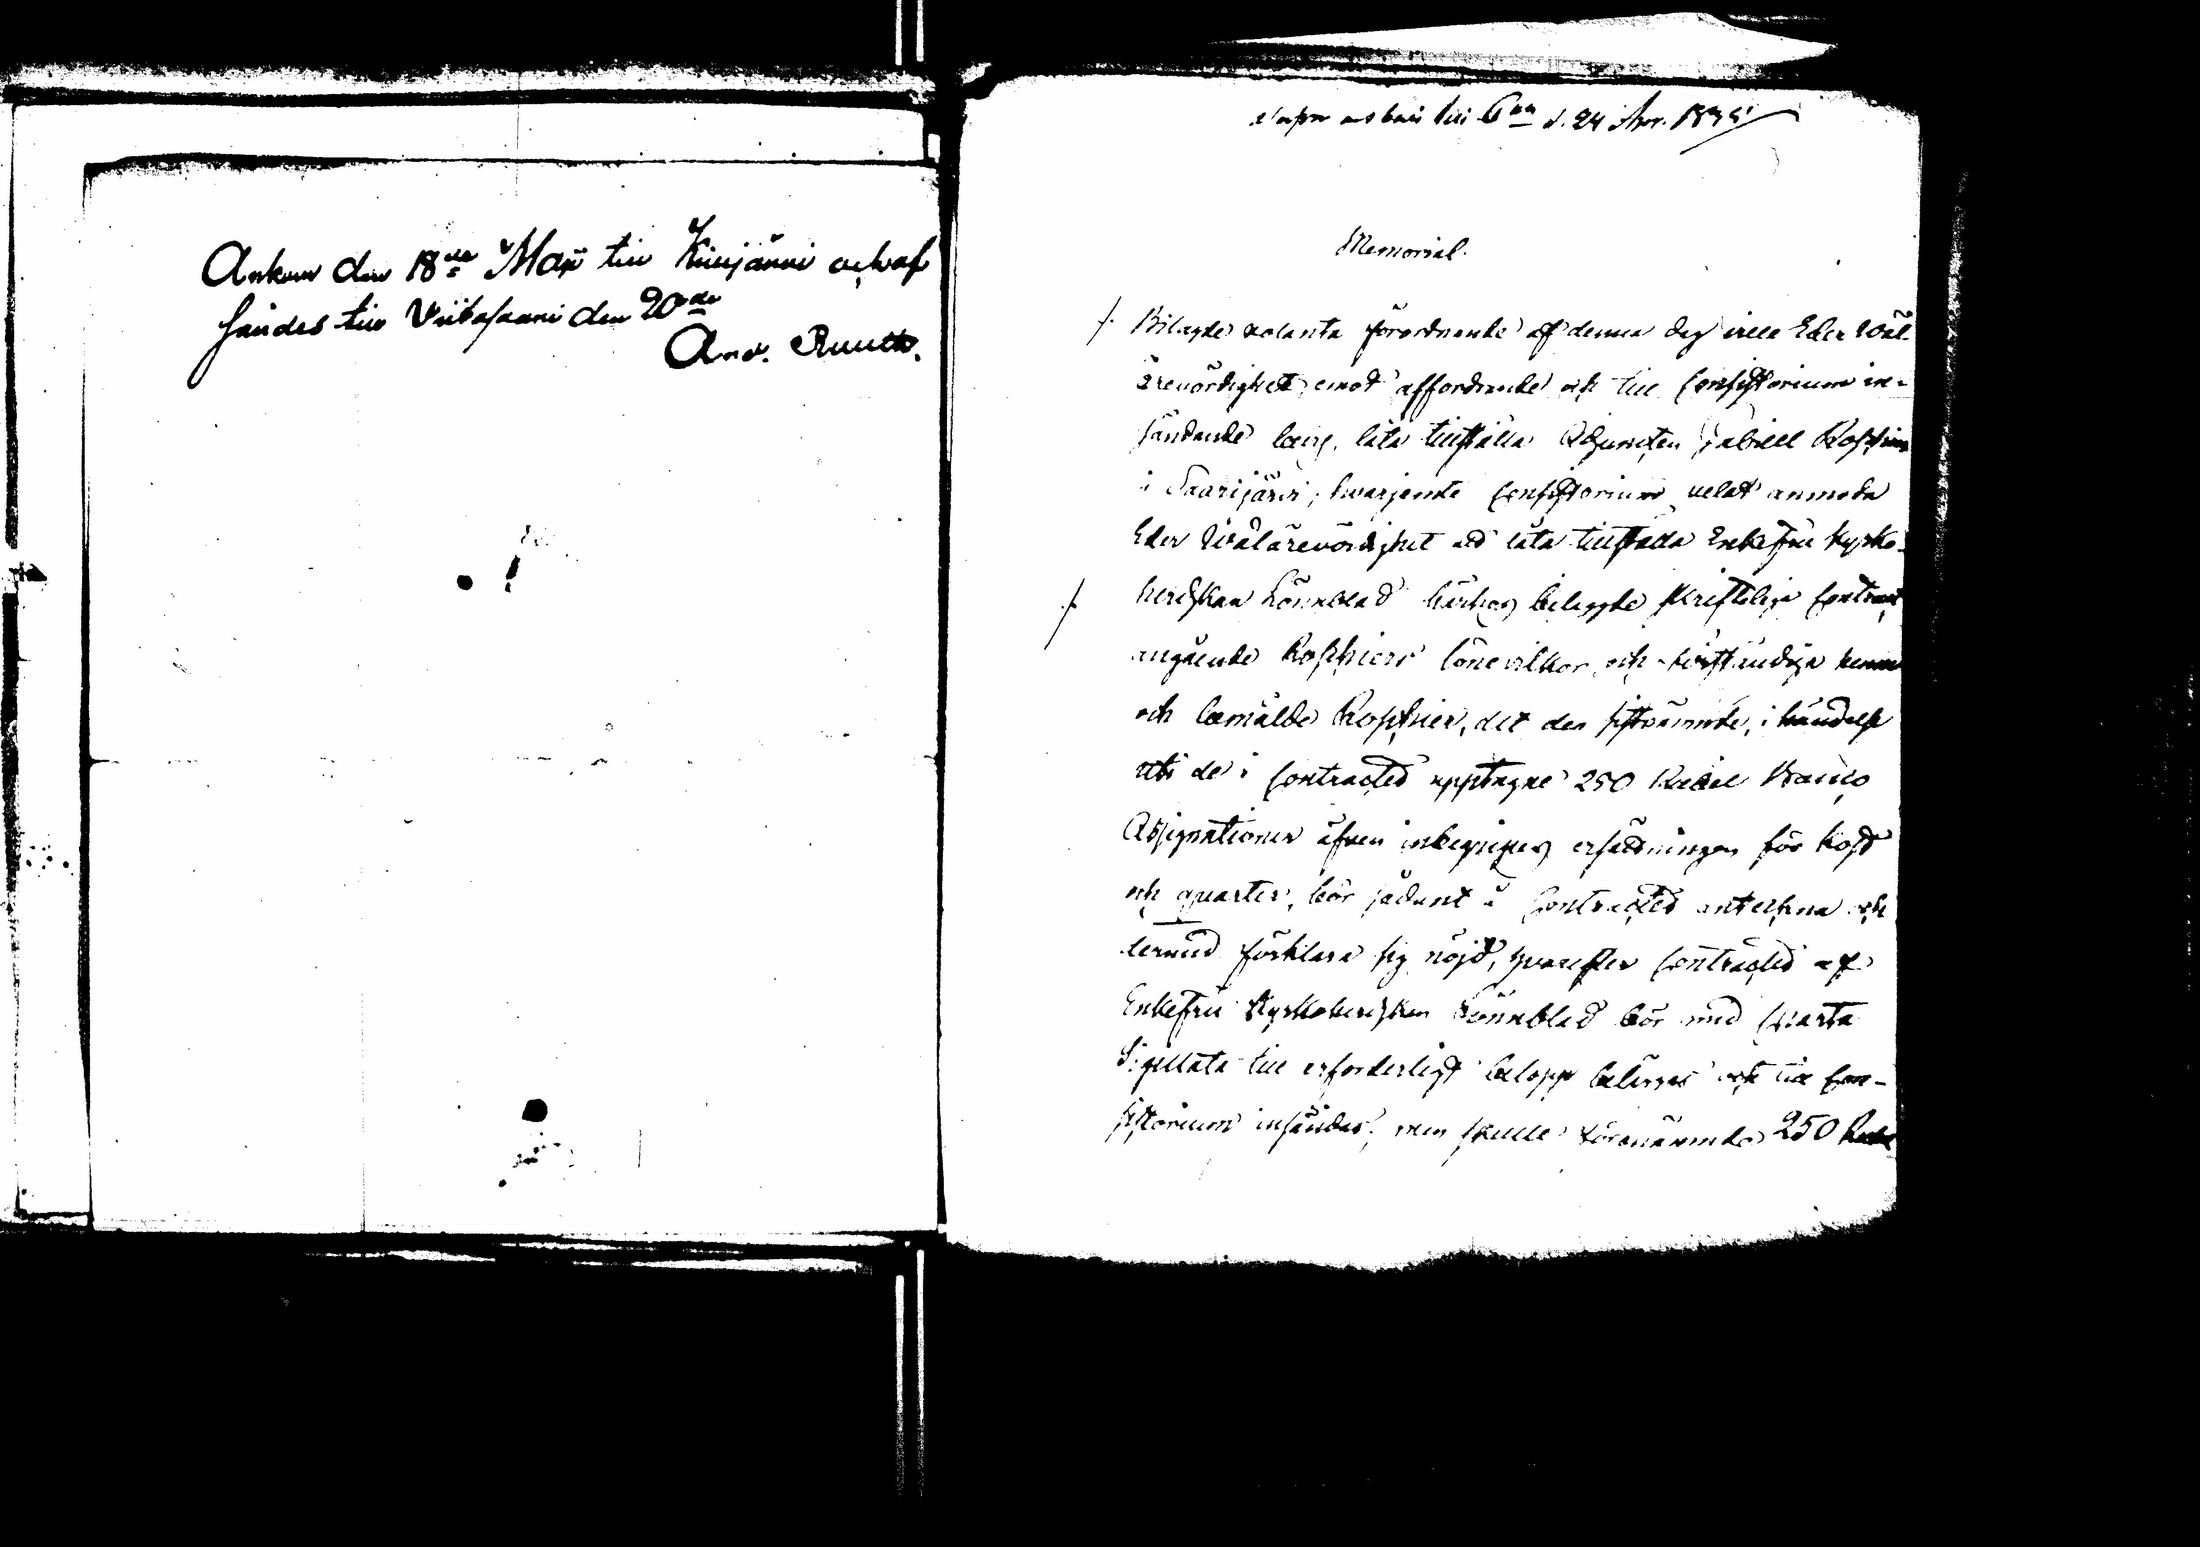 Ankom den 18de Maji till Kivijärvi och af
sändes till Viitasaari den 20de
And. Ruuth.
d. 24 1835
Memorial.
Bilagde volanta förordnande af denna dag ville Eder Wäl-
ärevördighet, emot affordrande och till Consistorium in-
sändande bevis, låta tillställa Adjuncten Gabriel Roschier
i Saarijärvi; hvarjemte Consistorium velat anmoda
Eder Wälärevördighet att låta tillställa Enkefru Kyrko-
herdskan Lönnblad härhos bilagde skriftelige Contract
angående Roschiers lönevilkor, och tillständiga henne
och bemälde Roschier, att den sistnämnde, i händelse
uti de i Contracted upptagne 250 Rubel Banco
Assignationer äfven inbegripes ersättningen för kost
och qvarter, bör sådant å Contracted anteckna och
dermed förklara sig nöjd, hvarefter Contracted af
Enkefru Kyrkoherdskan Lönnblad bör med Charta
Sigillata till erforderligt belopp beläggas och till Con-
sistorium insändas; men skulle förenämnde 250 Rubel